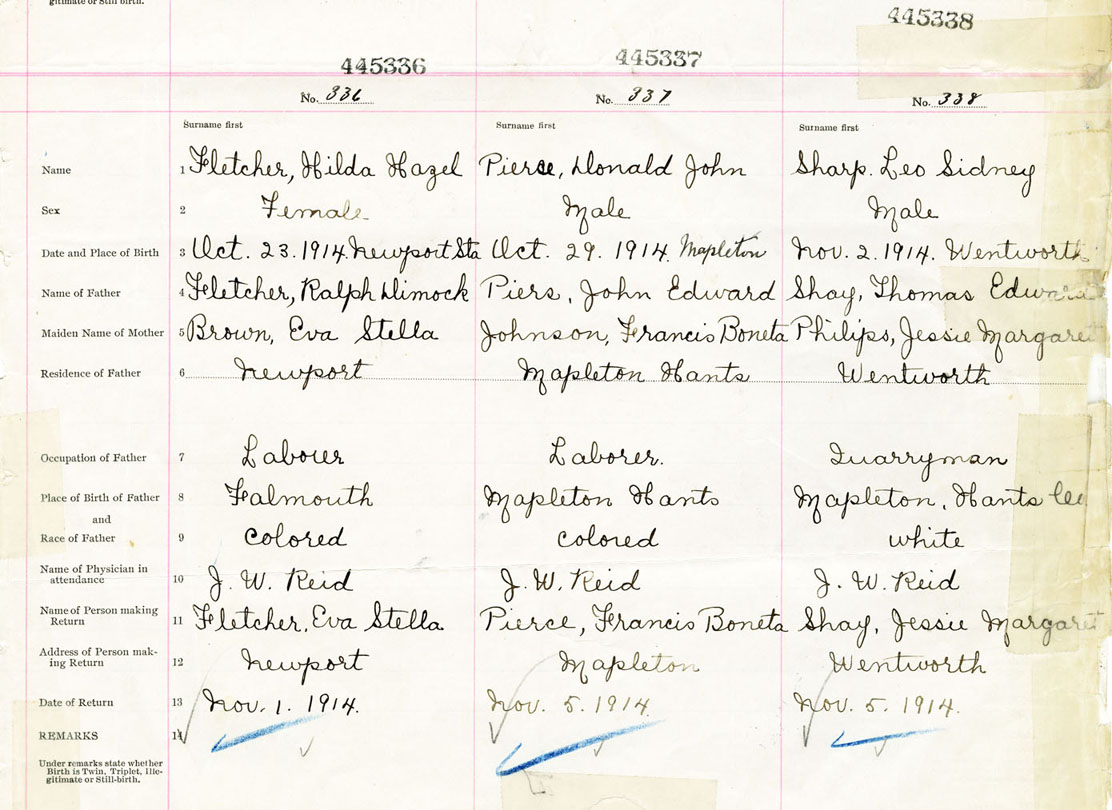 gitimate or Still birth.
445336 445337 445338
No. 336 No. 337 No. 338
Surname first Surname first Surname first
Name 1 Fletcher, Hilda Hazel Pierce, Donald John Sharp. Leo Sidney
Sex 2 Female Male Male
Date and Place of Birth 3 Oct. 23. 1914. Newport Sta Oct. 29. 1914. Mapleton Nov. 2. 1914. Wentworth
Name of Father 4 Fletcher, Ralph Dimock Piers, John Edward Shay, Thomas Edward
Maiden Name of Mother 5 Brown, Eva Stella Johnson, Francis Boneta Philips, Jessie Margaret
Residence of Father 6 Newport Mapleton Hants Wentworth
Occupation of Father 7 Labouer Laborer. Quarryman
Place of Birth of Father 8 Falmouth Mapleton Hants Mapleton, Hants
and
Race of Father 9 colored colored white
Name of Physician in
attendance 10 J. W. Reid J. W. Reid J. W. Reid
Name of Person making
Return 11 Fletcher, Eva Stella Pierce, Francis Boneta Shay, Jessie Margaret
Address of Person mak-
ing Return 12 Newport Mapleton Wentworth
Date of Return 13 Nov. 1. 1914. Nov. 5. 1914. Nov. 5. 1914.
REMARKS 14
Under remarks state whether
Birth is Twin, Triplet, Ille-
gitimate or Still-birth.